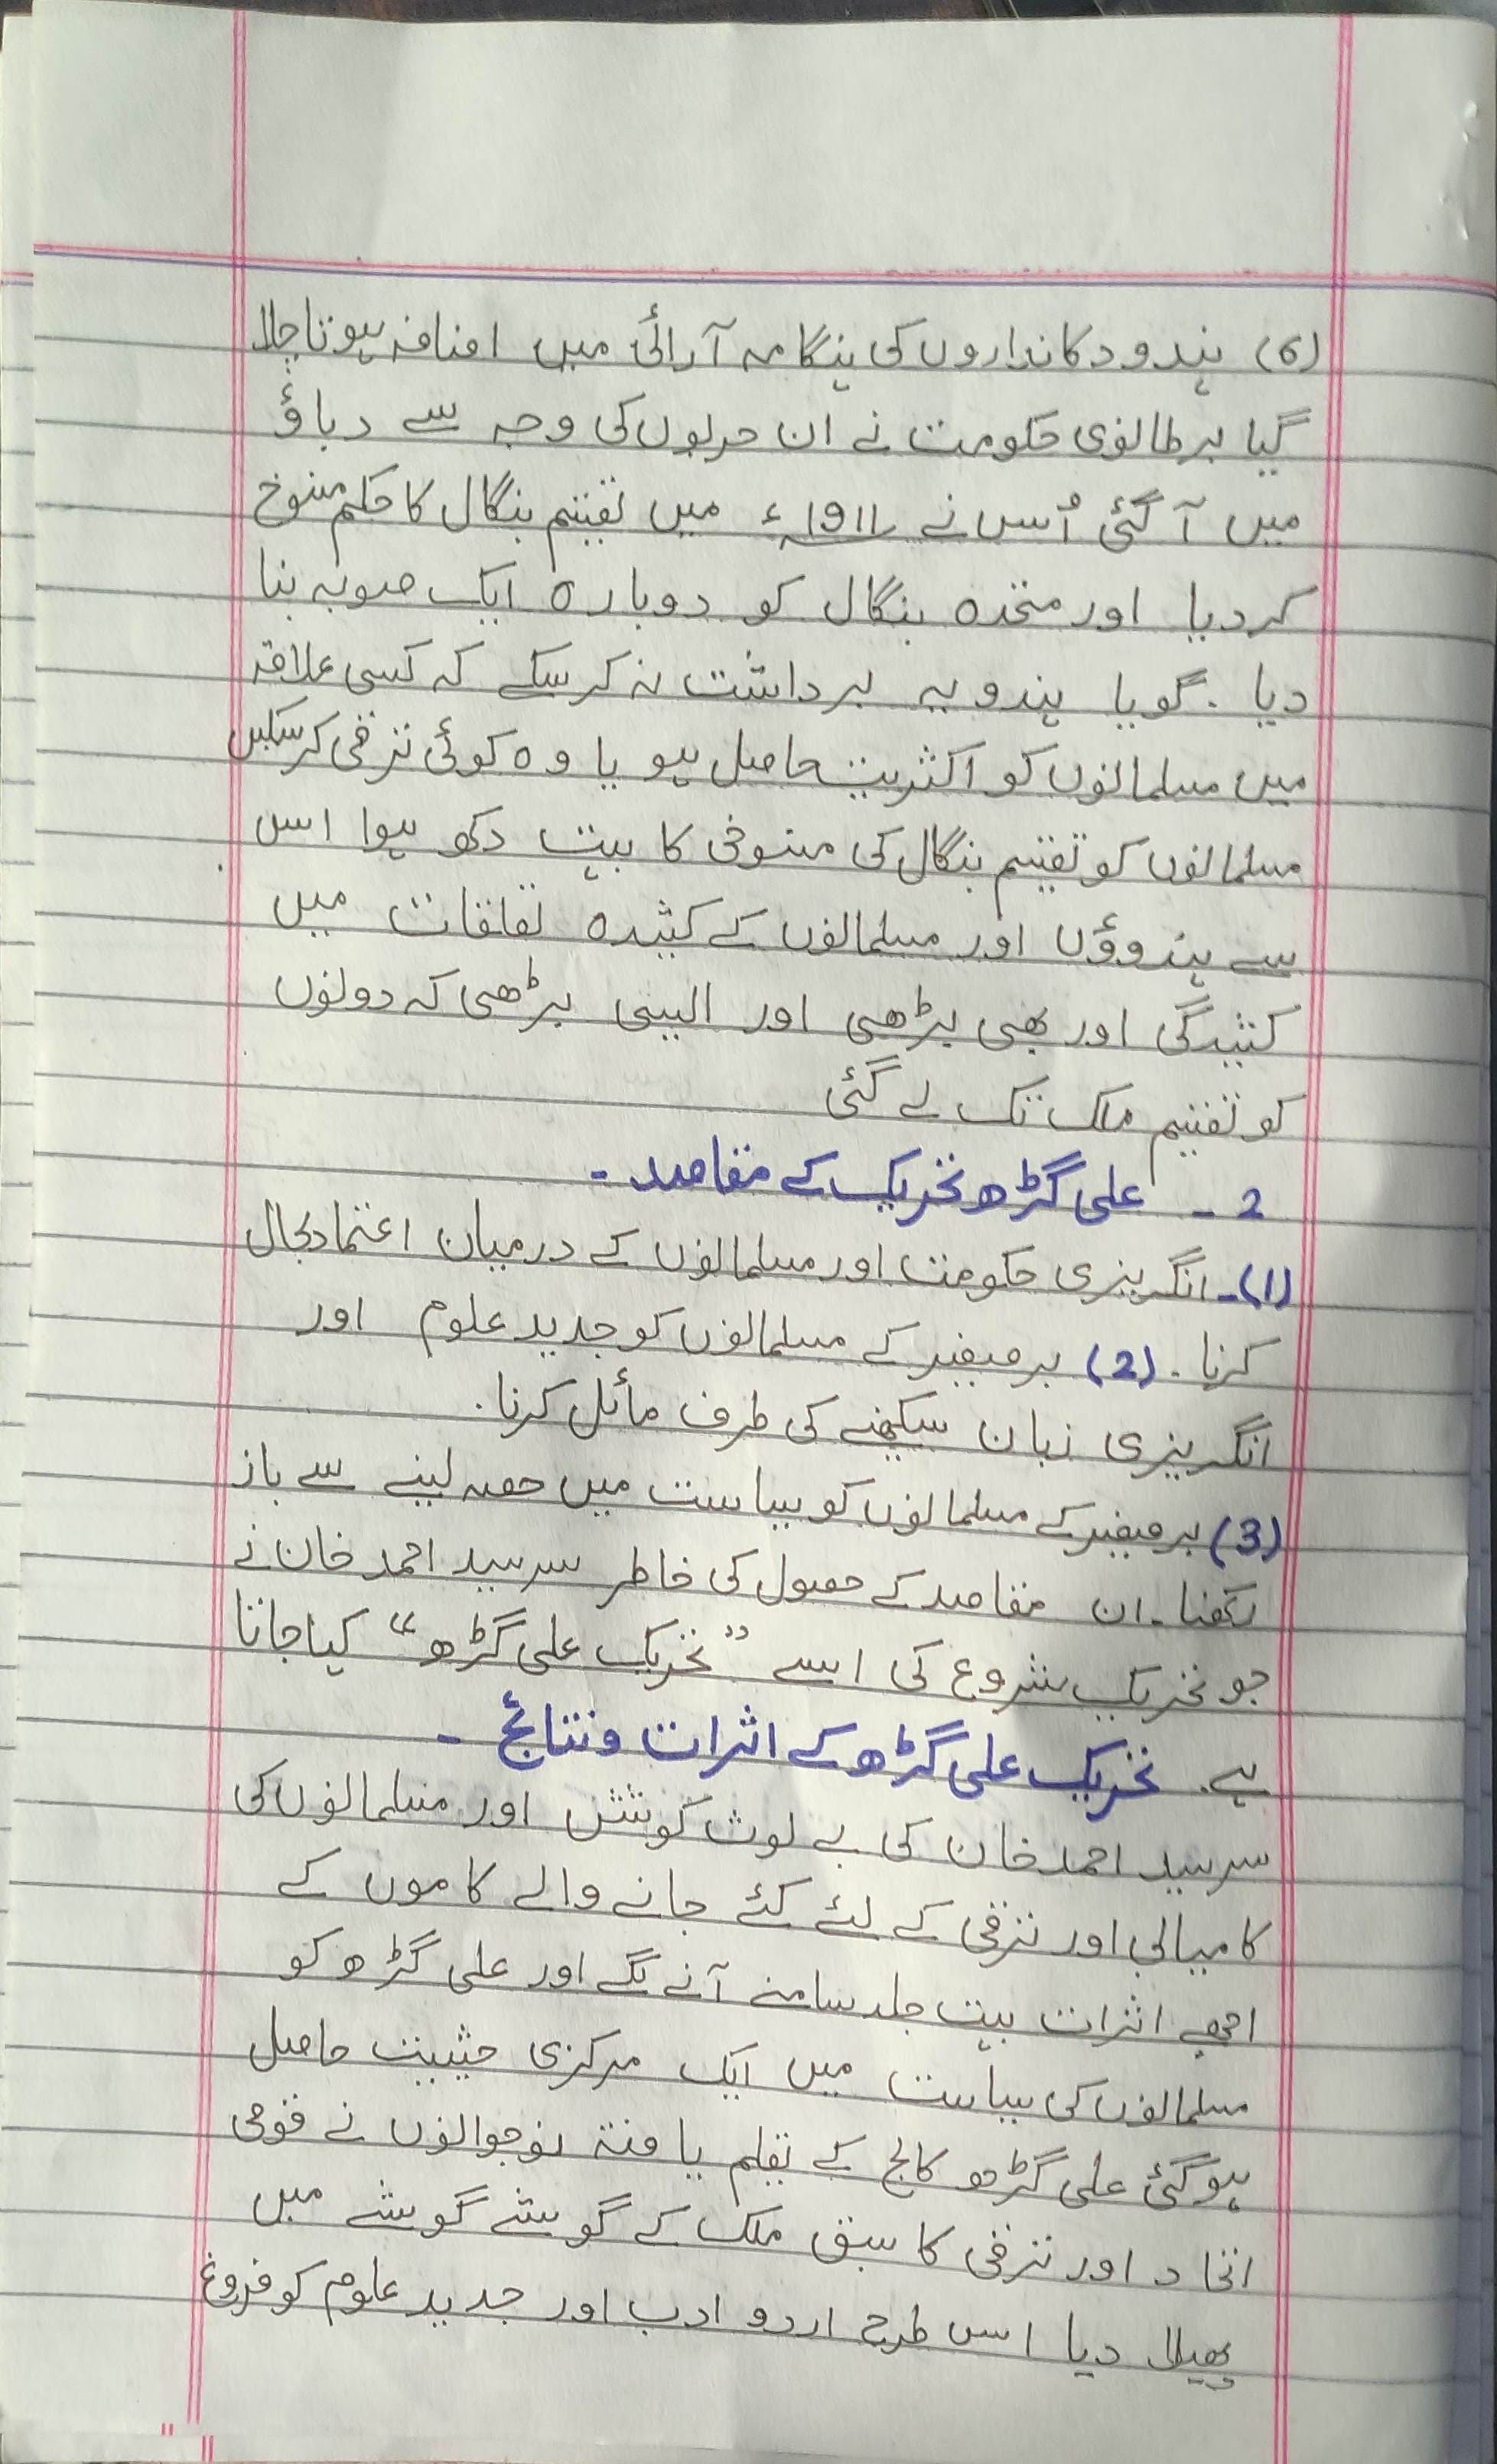 (6) ہندو دکانداروں کی ہنگامہ آرائی میں اضافہ ہوتا چلا
گیا برطانوی حکومت نے ان حربوں کی وجہ سے دباؤ
میں آ گئی اُس نے 1911ء میں تقسیم بنگال کا حکم منسوخ
کر دیا اور متحدہ بنگال کو دوبارہ ایک صوبہ بنا
دیا . گویا ہندو یہ برداشت نہ کر سکے کہ کسی علاقہ
میں مسلمانوں کو اکثریت حاصل ہو یا وہ کوئی ترقی کر سکیں
مسلمانوں کو تقسیم بنگال کی منسوخی کا بہت دکھ ہوا اس
سے ہندوؤں اور مسلمانوں کے کشیدہ تعلقات میں
کشیدگی اور بھی بڑھی اور ایسی بڑھی کہ دونوں
کو تقسیم ملک تک لے گئی
2 - علی گڑھ تحریک کے مقاصد -
(1)- انگریزی حکومت اور مسلمانوں کے درمیان اعتماد بحال
کرنا . (2) برصغیر کے مسلمانوں کو جدید علوم اور
انگریزی زبان سیکھنے کی طرف مائل کرنا .
(3) برصغیر کے مسلمانوں کو سیاست میں حصہ لینے سے باز
رکھنا - ان مقاصد کے حصول کی خاطر سرسید احمد خان نے
جو تحریک شروع کی اسے "تحریک علی گڑھ" کہا جاتا
ہے . تحریک علی گڑھ کے اثرات و نتائج -
سرسید احمد خان کی بے لوث کوشش اور مسلمانوں کی
کامیابی اور ترقی کے لئے کئے جانے والے کاموں کے
اچھے اثرات بہت جلد سامنے آنے لگے اور علی گڑھ کو
مسلمانوں کی سیاست میں ایک مرکزی حیثیت حاصل
ہوگئی علی گڑھ کالج کے تعلیم یافتہ نوجوانوں نے قومی
اتحاد اور ترقی کا سبق ملک کے گوشے گوشے میں
پھیلا دیا اس طرح اردو ادب اور جدید علوم کو فروغ